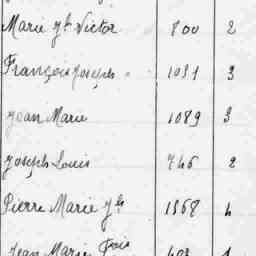 Marie Jh Victor 800 2
François Joseph " 1031 3
Jean Marie 1089 3
Joseph Louis 746 2
Pierre Marie Jh 1568 4
Jean Marie Fois 403 1